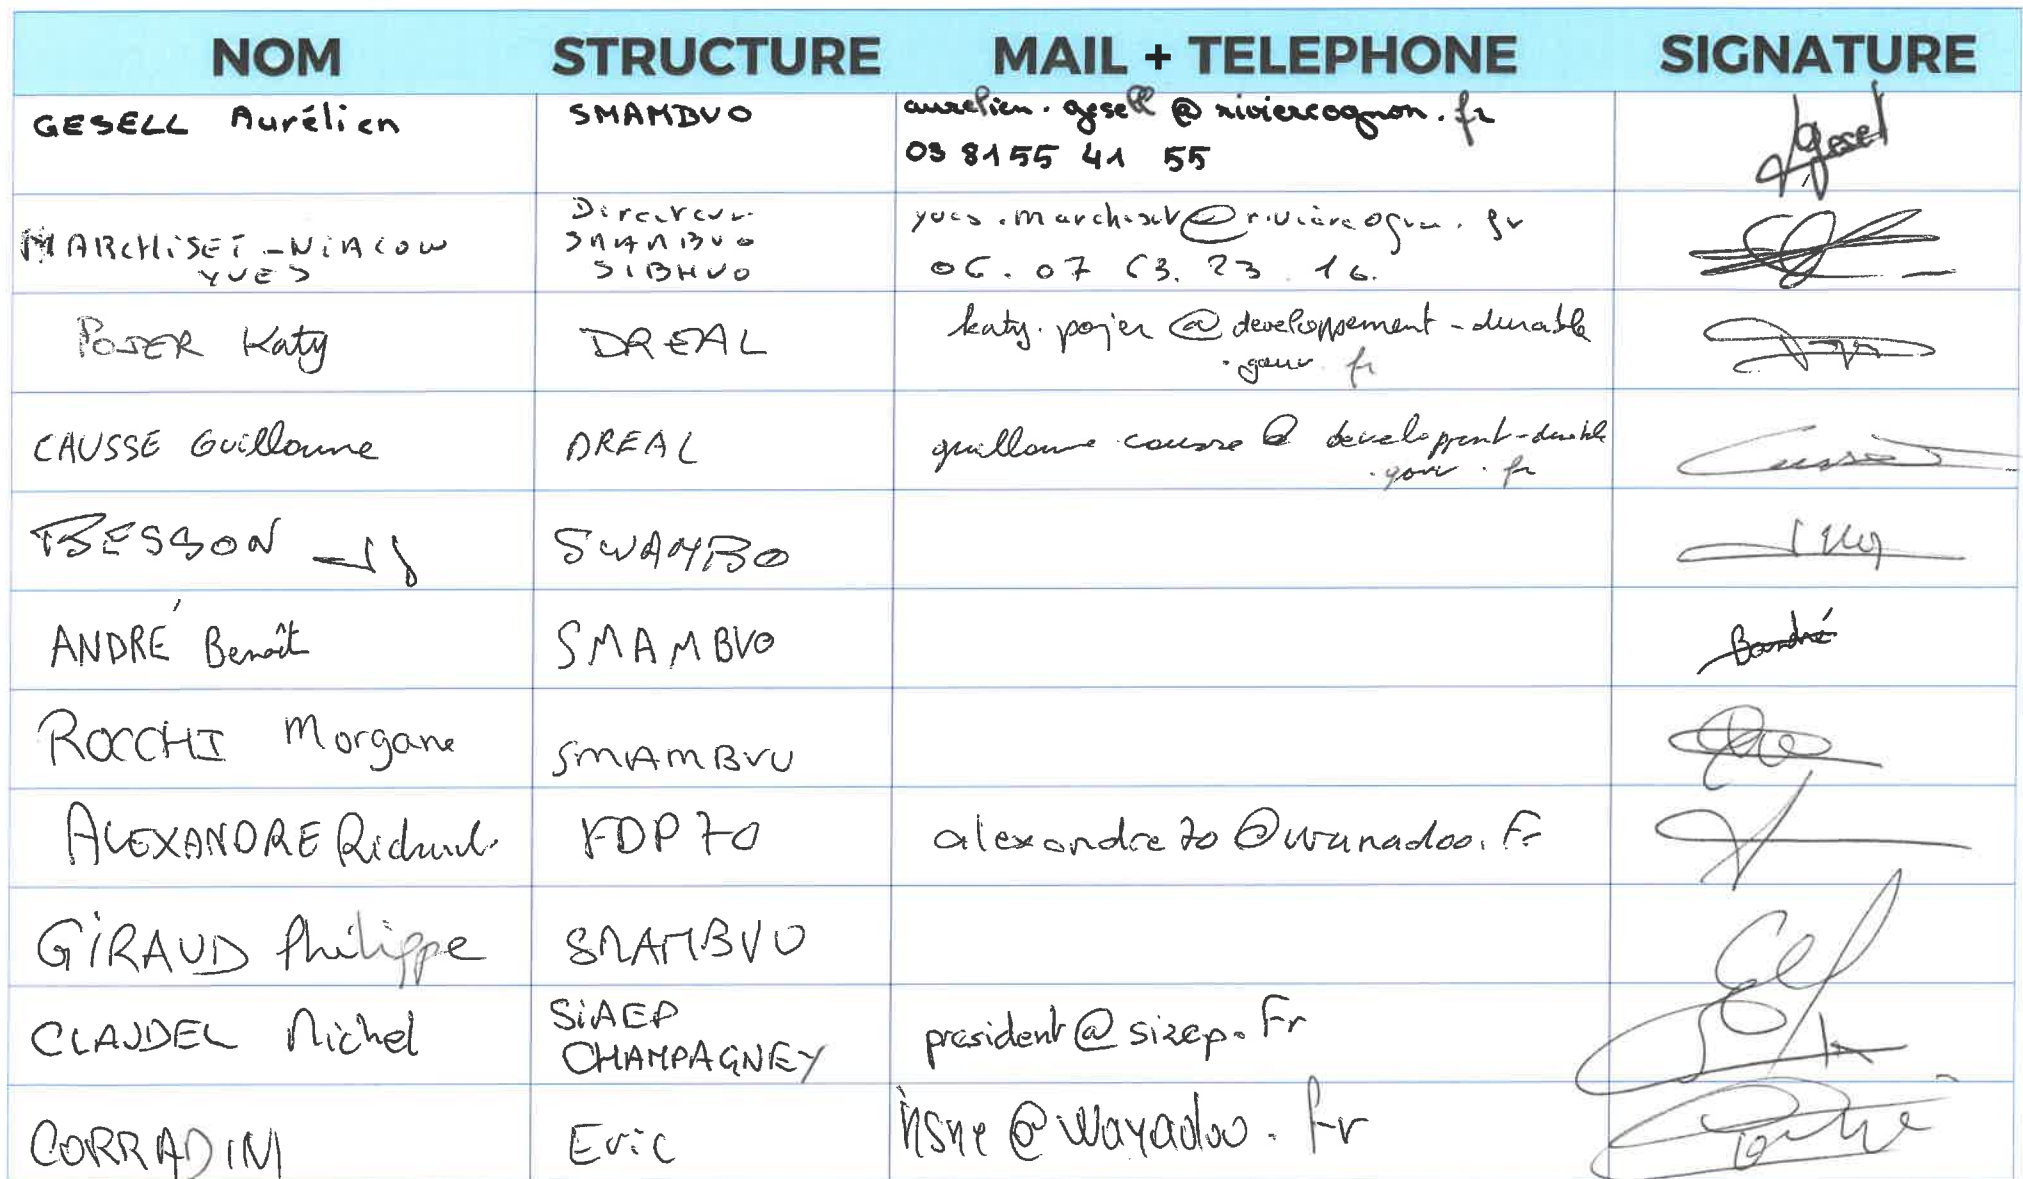 NOM STRUCTURE MAIL + TELEPHONE SIGNATURE
GESELL Aurélien SMAMBVO aurelien.gesell@riviereognon.fr
03 81 55 41 55
MARCHISET - YVES
Directeur SMAMBVO SIBHVO
yves.marchiset@riviereognon.fr
06.07 63.23.16.
POJER Katy DREAL katy.pojer@developpement-durable
.gouv.fr
CAUSSE Guillaume DREAL guillaume causse @ developpement-durable
.gouv.fr
BESSON JJ
ANDRÉ Benoît SMAMBVO
ROCCHI Morgane SMAMBVO
ALEXANDRE Richard FDP70 alexandre70@wanadoo.Fr
GIRAUD Philippe SMAMBVO
CLAUDEL Michel SIAEP
CHAMPAGNEY
president@siaep.Fr
CORRADINI Eric @wanadoo.fr